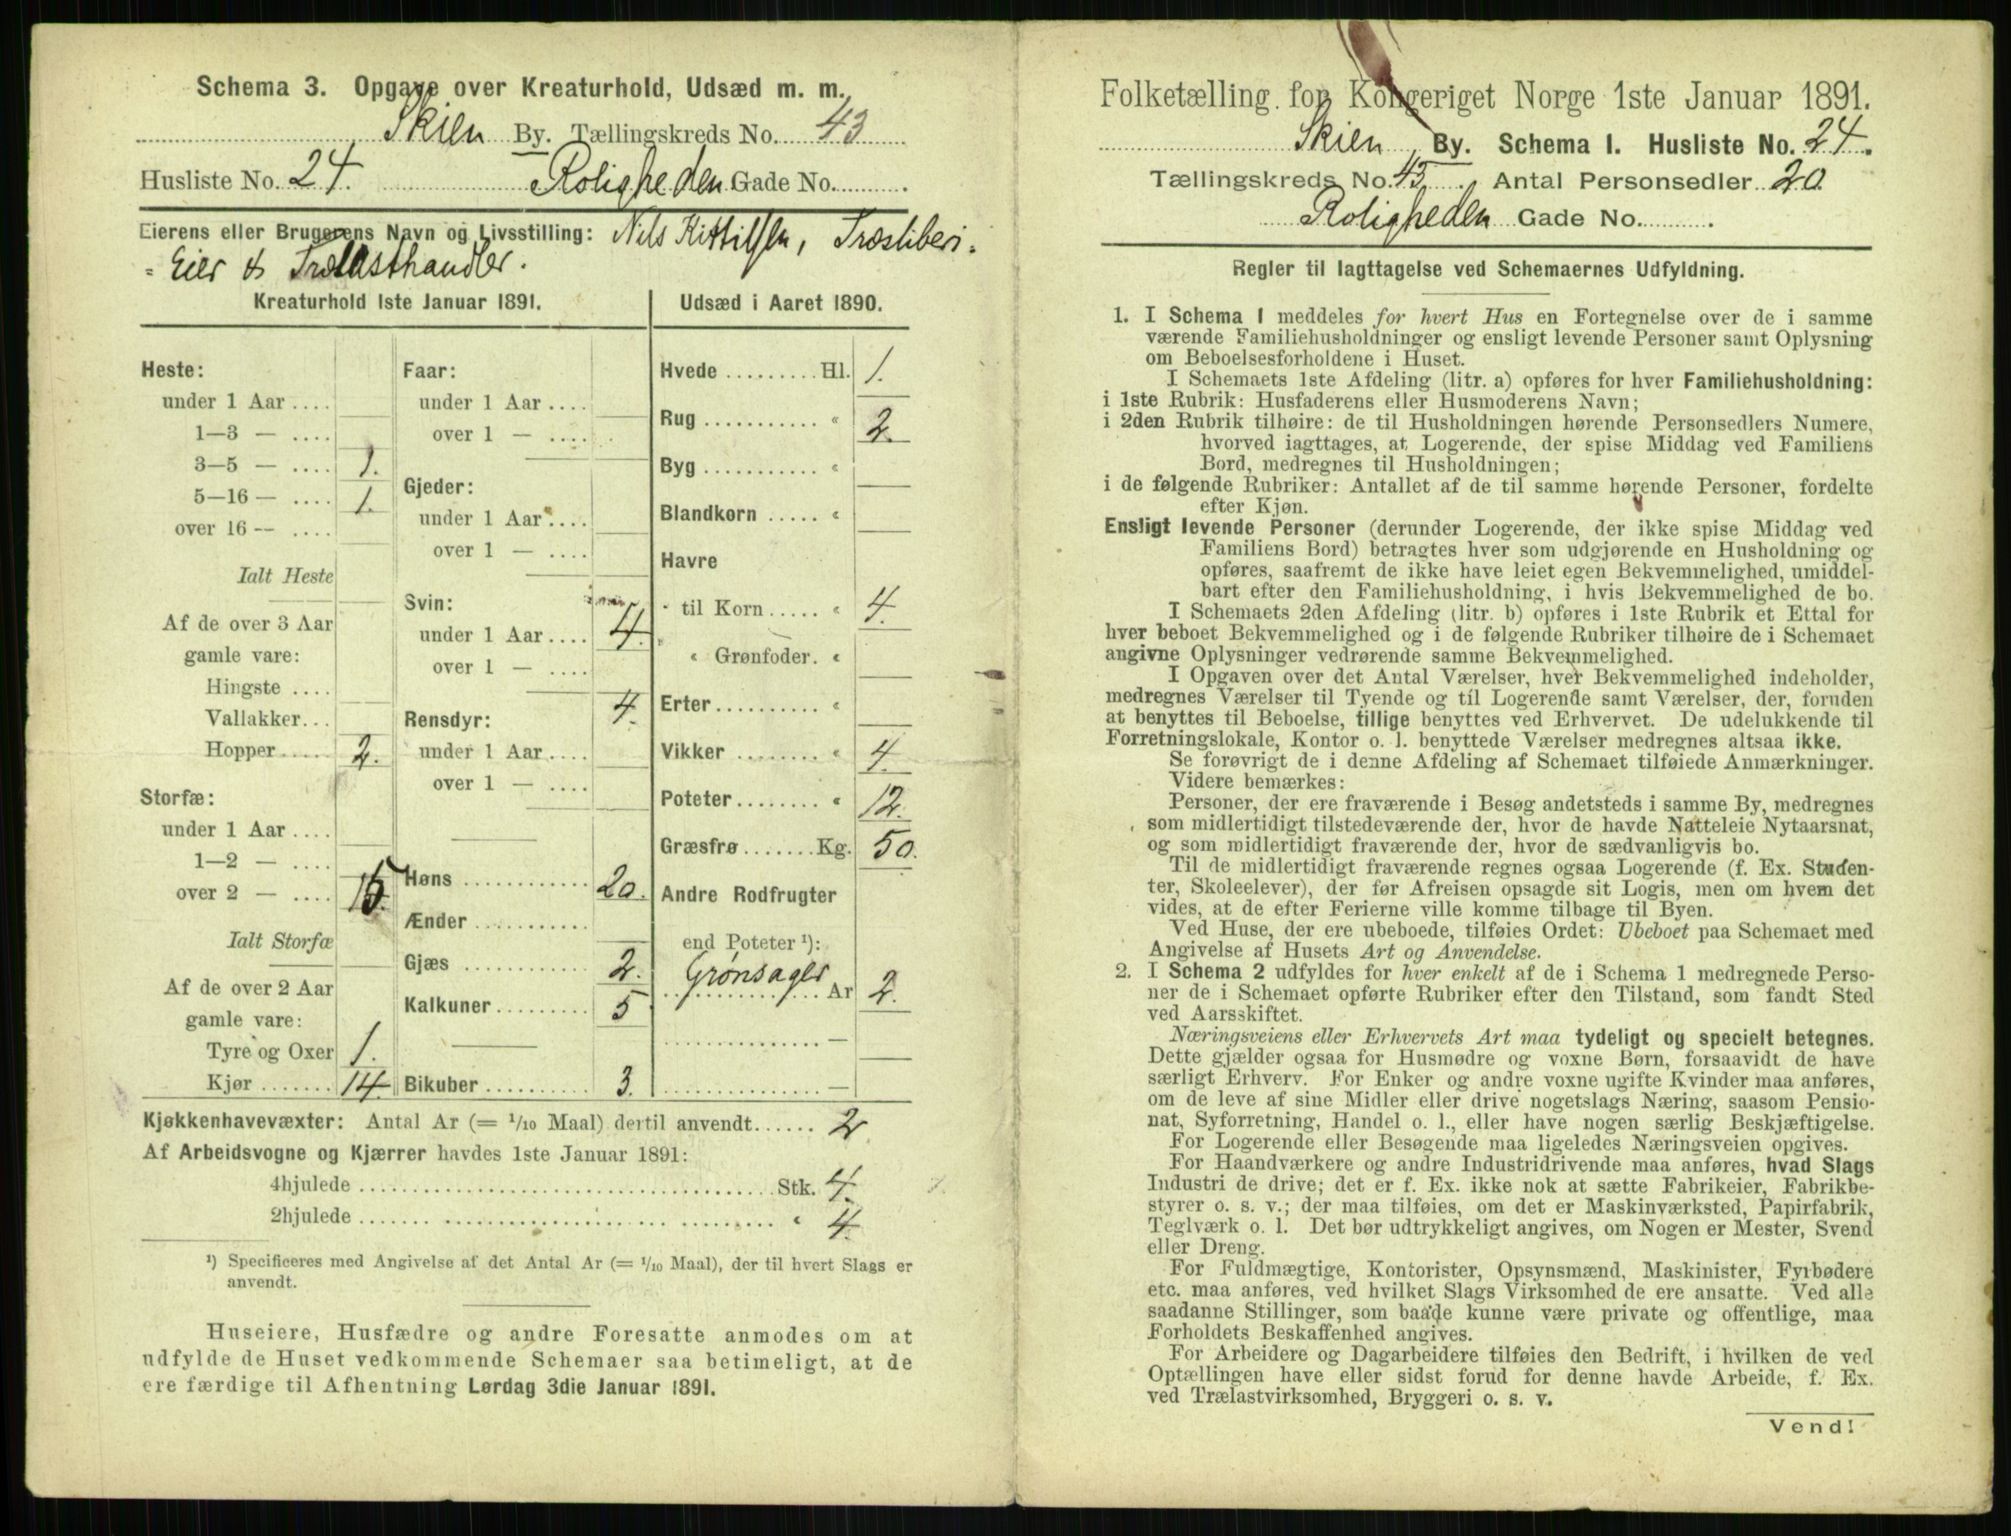 Schema 3. Opgave over Kreaturhold, Udsæd m. m.
Skien By. Tællingskreds No. 43
Husliste No. 24. Roligheden Gade No.
Eierens eller Brugerens Navn og Livsstilling: Nils Kittilsen, Træsliberi-
-Eier & Trælasthandler.
Kreaturhold 1ste Januar 1891.
Heste:
under 1 Aar ....
1—3 — ....
3—5 — .... 1.
5—16 — .... 1.
over 16 — ....
Ialt Heste
Af de over 3 Aar
gamle vare:
Hingste ....
Vallakker...
Hopper ..... 2.
Storfæ:
under 1 Aar ....
1—2 — ....
over 2 — .... 15.
Ialt Storfæ
Af de over 2 Aar
gamle vare:
Tyre og Oxer 1.
Kjør ....... 14.
Faar:
under 1 Aar ....
over 1 — ....
Gjeder:
under 1 Aar ....
over 1 — ....
Svin:
under 1 Aar .... 4.
over 1 — ....
4.
Rensdyr:
under 1 Aar ....
over 1 — ....
Høns ............ 20.
Ænder ...........
Gjæs ............ 2.
Kalkuner ......... 5
Bikuber .......... 3.
Udsæd i Aaret 1890.
Hvede ......... Hl. 1.
Rug ........... " 2.
Byg ........... "
Blandkorn ..... "
Havre
til Korn ..... " 4.
" Grønfoder. "
Erter .......... "
Vikker ........ " 4.
Poteter ........ " 12.
Græsfrø ....... Kg. 50.
Andre Rodfrugter
end Poteter ¹):
Grønsager Ar 2.
................ —
................ —
Kjøkkenhavevæxter: Antal Ar (= 1/10 Maal) dertil anvendt...... 2
Af Arbeidsvogne og Kjærrer havdes 1ste Januar 1891:
4hjulede ........................................ Stk. 4.
2hjulede ........................................ " 4.
¹) Specificeres med Angivelse af det Antal Ar (= 1/10 Maal), der til hvert Slags er
anvendt.
Huseiere, Husfædre og andre Foresatte anmodes om at
udfylde de Huset vedkommende Schemaer saa betimeligt, at de
ere færdige til Afhentning Lørdag 3die Januar 1891.
Folketælling for Kongeriget Norge 1ste Januar 1891.
Skien By. Schema 1. Husliste No. 24.
Tællingskreds No. 43. Antal Personsedler 20
Roligheden Gade No.
Regler til Iagttagelse ved Schemaernes Udfyldning.
1. I Schema 1 meddeles for hvert Hus en Fortegnelse over de i samme
værende Familiehusholdninger og ensligt levende Personer samt Oplysning
om Beboelsesforholdene i Huset.
I Schemaets 1ste Afdeling (litr. a) opføres for hver Familiehusholdning:
i 1ste Rubrik: Husfaderens eller Husmoderens Navn;
i 2den Rubrik tilhøire: de til Husholdningen hørende Personsedlers Numere,
hvorved iagttages, at Logerende, der spise Middag ved Familiens
Bord, medregnes til Husholdningen;
i de følgende Rubriker: Antallet af de til samme hørende Personer, fordelte
efter Kjøn.
Ensligt levende Personer (derunder Logerende, der ikke spise Middag ved
Familiens Bord) betragtes hver som udgjørende en Husholdning og
opføres, saafremt de ikke have leiet egen Bekvemmelighed, umiddel-
bart efter den Familiehusholdning, i hvis Bekvemmelighed de bo.
I Schemaets 2den Afdeling (litr. b) opføres i 1ste Rubrik et Ettal for
hver beboet Bekvemmelighed og i de følgende Rubriker tilhøire de i Schemaet
angivne Oplysninger vedrørende samme Bekvemmelighed.
I Opgaven over det Antal Værelser, hver Bekvemmelighed indeholder,
medregnes Værelser til Tyende og til Logerende samt Værelser, der, foruden
at benyttes til Beboelse, tillige benyttes ved Erhvervet. De udelukkende til
Forretningslokale, Kontor o. l. benyttede Værelser medregnes altsaa ikke.
Se forøvrigt de i denne Afdeling af Schemaet tilføiede Anmærkninger.
Videre bemærkes:
Personer, der ere fraværende i Besøg andetsteds i samme By, medregnes
som midlertidigt tilstedeværende der, hvor de havde Natteleie Nytaarsnat,
og som midlertidigt fraværende der, hvor de sædvanligvis bo.
Til de midlertidigt fraværende regnes ogsaa Logerende (f. Ex. Studen-
ter, Skoleelever), der før Afreisen opsagde sit Logis, men om hvem det
vides, at de efter Ferierne ville komme tilbage til Byen.
Ved Huse, der ere ubeboede, tilføies Ordet: Ubeboet paa Schemaet med
Angivelse af Husets Art og Anvendelse.
2. I Schema 2 udfyldes for hver enkelt af de i Schema 1 medregnede Perso-
ner de i Schemaet opførte Rubriker efter den Tilstand, som fandt Sted
ved Aarsskiftet.
Næringsveiens eller Erhvervets Art maa tydeligt og specielt betegnes.
Dette gjælder ogsaa for Husmødre og voxne Børn, forsaavidt de have
særligt Erhverv. For Enker og andre voxne ugifte Kvinder maa anføres,
om de leve af sine Midler eller drive nogetslags Næring, saasom Pensio-
nat, Syforretning, Handel o. l., eller have nogen særlig Beskjæftigelse.
For Logerende eller Besøgende maa ligeledes Næringsveien opgives.
For Haandværkere og andre Industridrivende maa anføres, hvad Slags
Industri de drive; det er f. Ex. ikke nok at sætte Fabrikeier, Fabrikbe-
styrer o. s. v.; der maa tilføies, om det er Maskinværksted, Papirfabrik,
Teglværk o. l. Det bør udtrykkeligt angives, om Nogen er Mester, Svend
eller Dreng.
For Fuldmægtige, Kontorister, Opsynsmænd, Maskinister, Fyrbødere
etc. maa anføres, ved hvilket Slags Virksomhed de ere ansatte. Ved alle
saadanne Stillinger, som baade kunne være private og offentlige, maa
Forholdets Beskaffenhed angives.
For Arbeidere og Dagarbeidere tilføies den Bedrift, i hvilken de ved
Optællingen have eller sidst forud for denne havde Arbeide, f. Ex.
ved Trælastvirksomhed, Bryggeri o. s. v.
Vend!